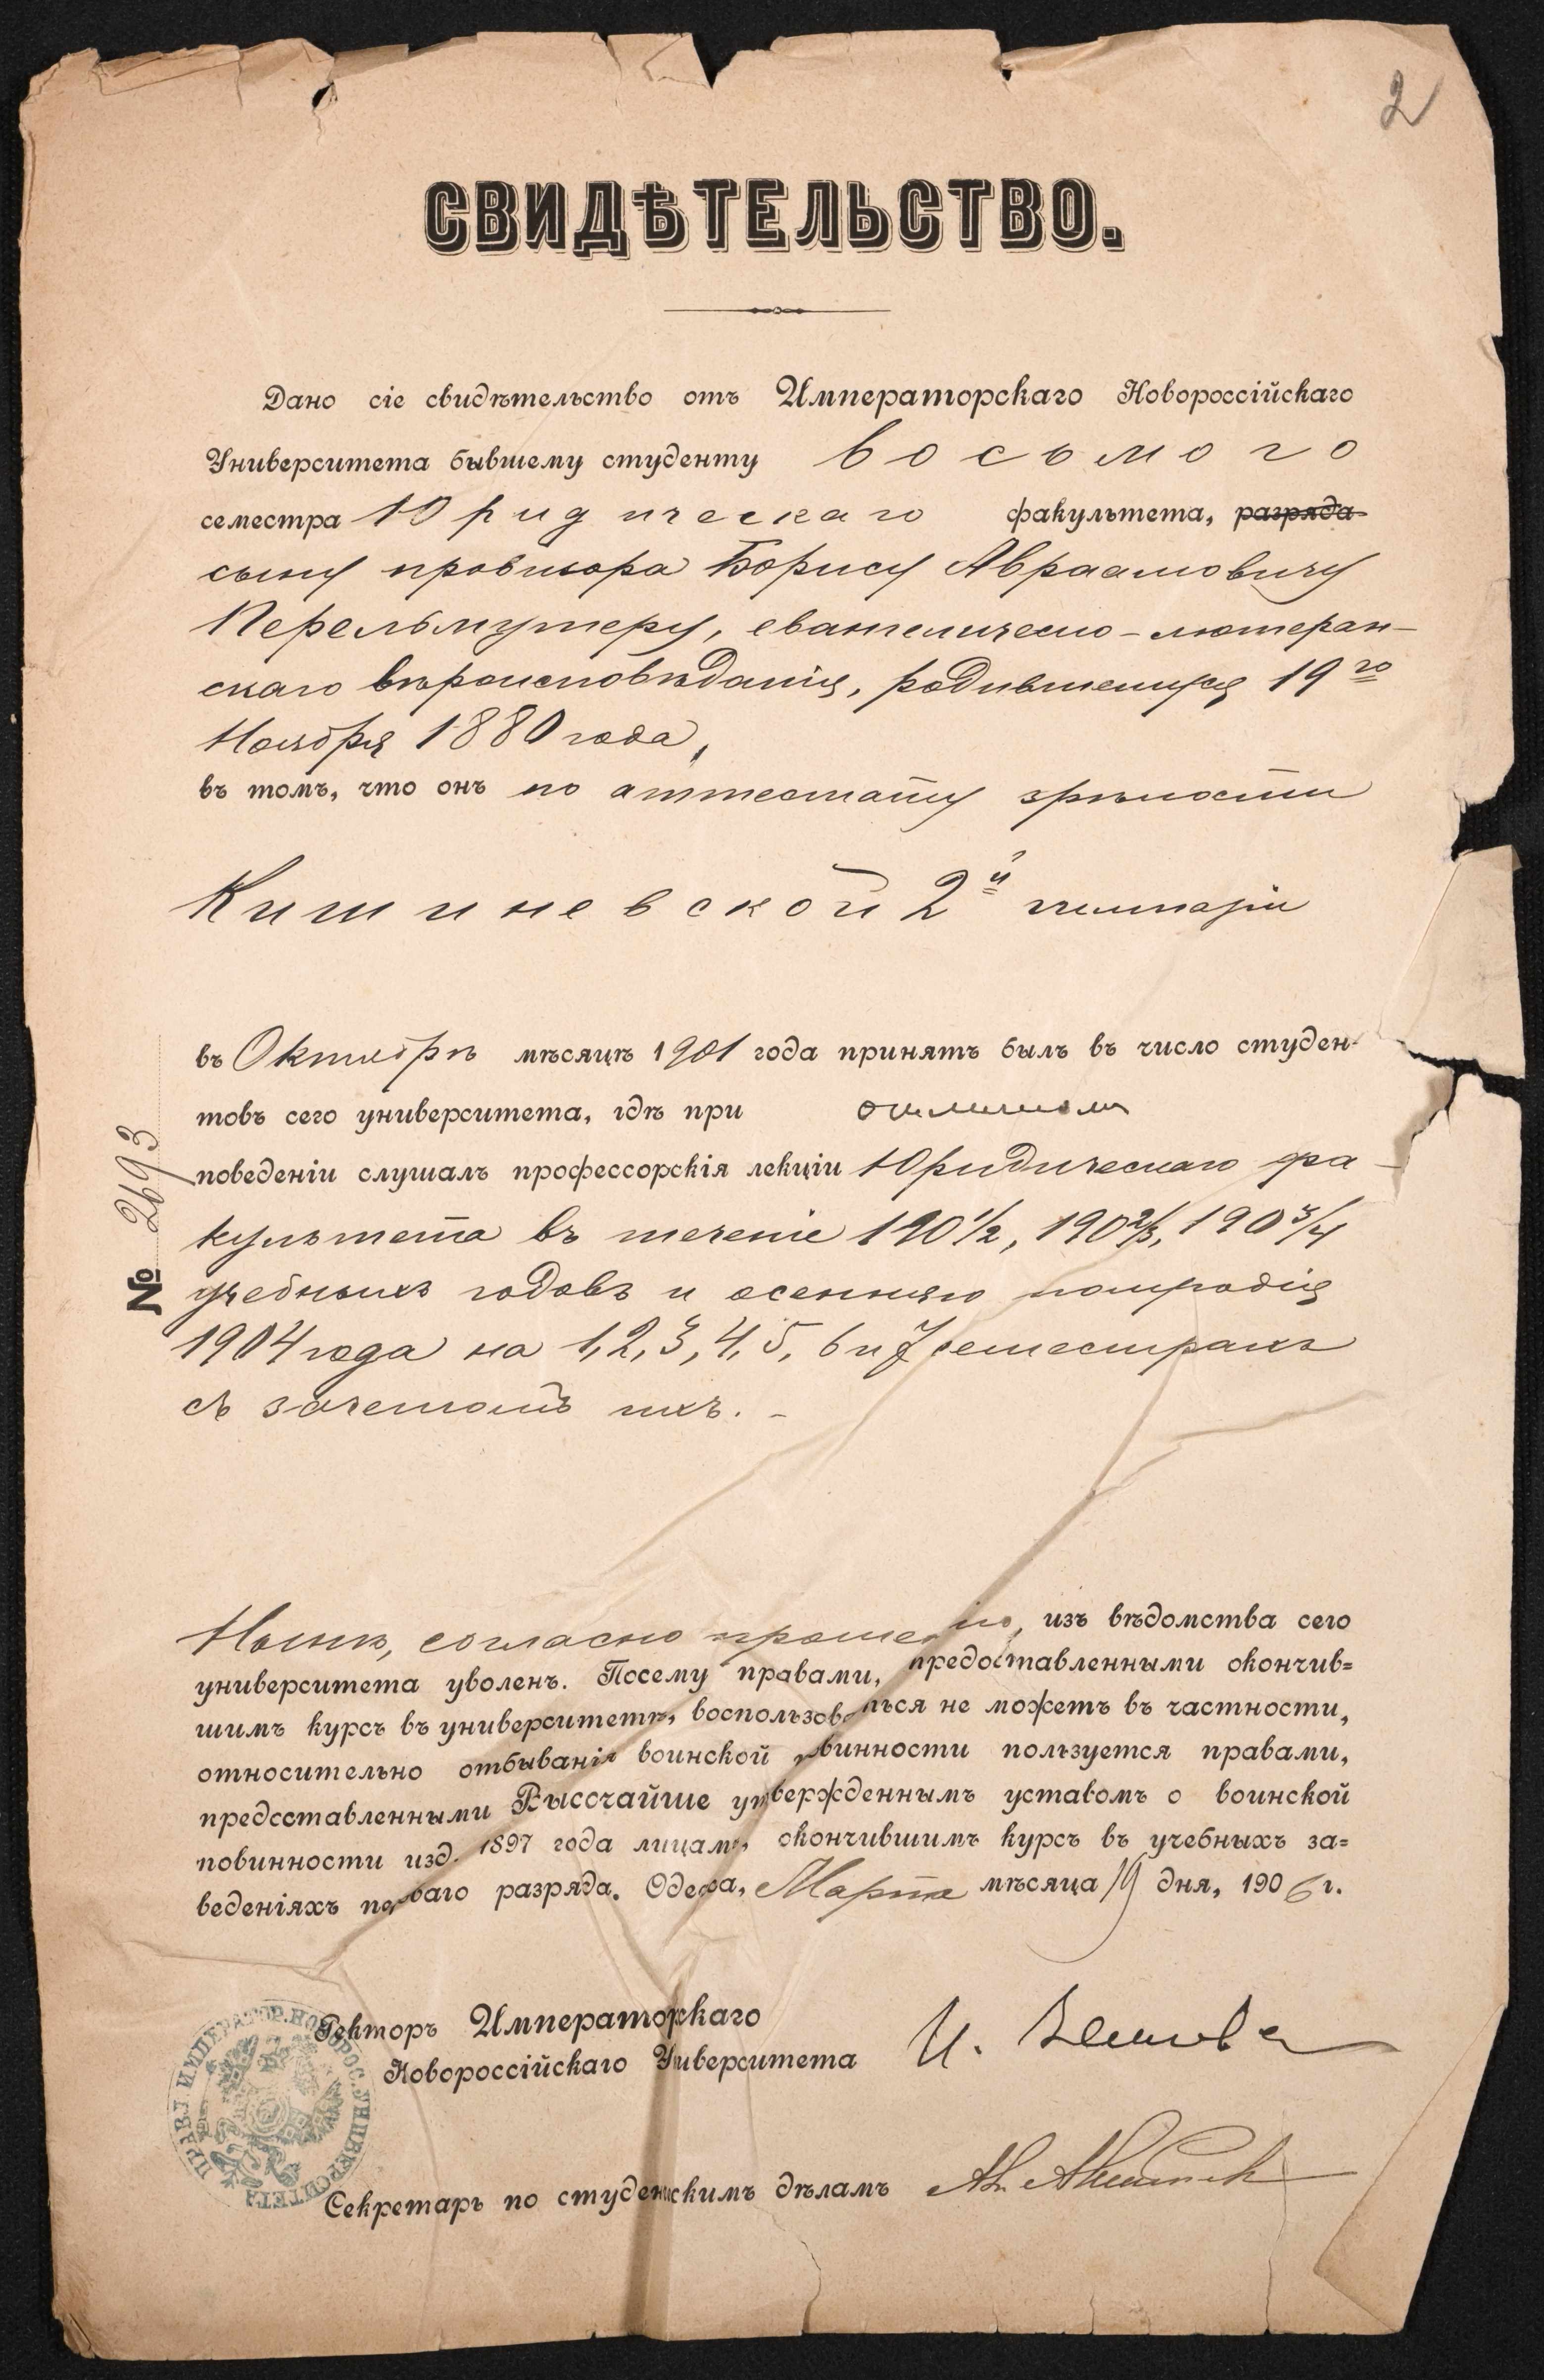 2
СВИДѢТЕЛЬСТВО.
Дано сіе свидѣтельство отъ Императорскаго Новороссійскаго
Университета бывшему студенту восьмого
семестра Юридическаго факультета, разряда
сыну провизора Борису Авраамовичу
Перельмутеру, евангелическо-лютеран-
скаго вѣроисповѣданія, родившемуся 19го
Ноября 1880 года,
въ томъ, что онъ по аттестату зрѣлости
Кишиневской 2й гимназіи
въ Октябрѣ мѣсяцѣ 1901 года принятъ былъ въ число студен-
товъ сего университета, гдѣ при отличномъ
поведеніи слушалъ профессорскія лекціи Юридическаго фа-
культета въ теченіе 1901/2, 1902/3, 1903/4
учебныхъ годовъ и осенняго полугодія
1904 года на 1, 2, 3, 4, 5, 6 и 7 семестрахъ
съ зачетомъ ихъ. -
№ 2693
Нынѣ, согласно прошенію, изъ вѣдомства сего
университета уволенъ. Посему правами, предоставленными окончив=
шимъ курсъ въ университетѣ, воспользоваться не можетъ въ частности,
относительно отбыванія воинской повинности пользуется правами,
предоставленными Высочайше утвержденнымъ уставомъ о воинской
повинности изд. 1897 года лицамъ, окончившимъ курсъ въ учебныхъ за=
веденіяхъ перваго разряда. Одесса, Марта мѣсяца 19 дня, 1906 г.
Ректоръ Императорскаго
Новороссійскаго Университета И.
Секретарь по студенскимъ дѣламъ
ПРАВЛ. ИМПЕРАТОР. НОВОРОС. УНИВЕРСИТЕТА